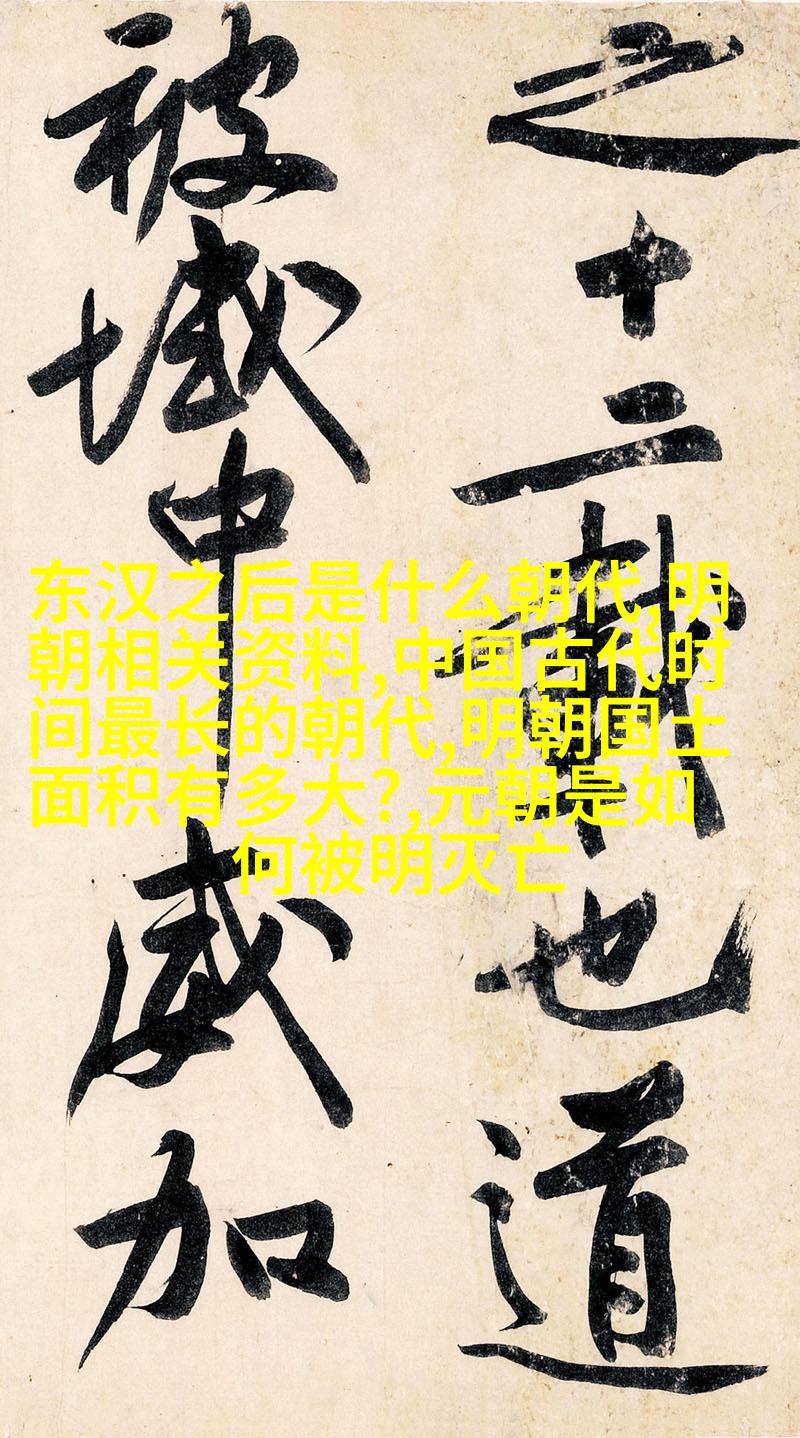 之十二載也道
被域中威加
东汉之后是什么朝代,明
朝相关资料,中国古代时
间最长的朝代,明朝国土
面积有多大?,元朝是如
何被明灭亡